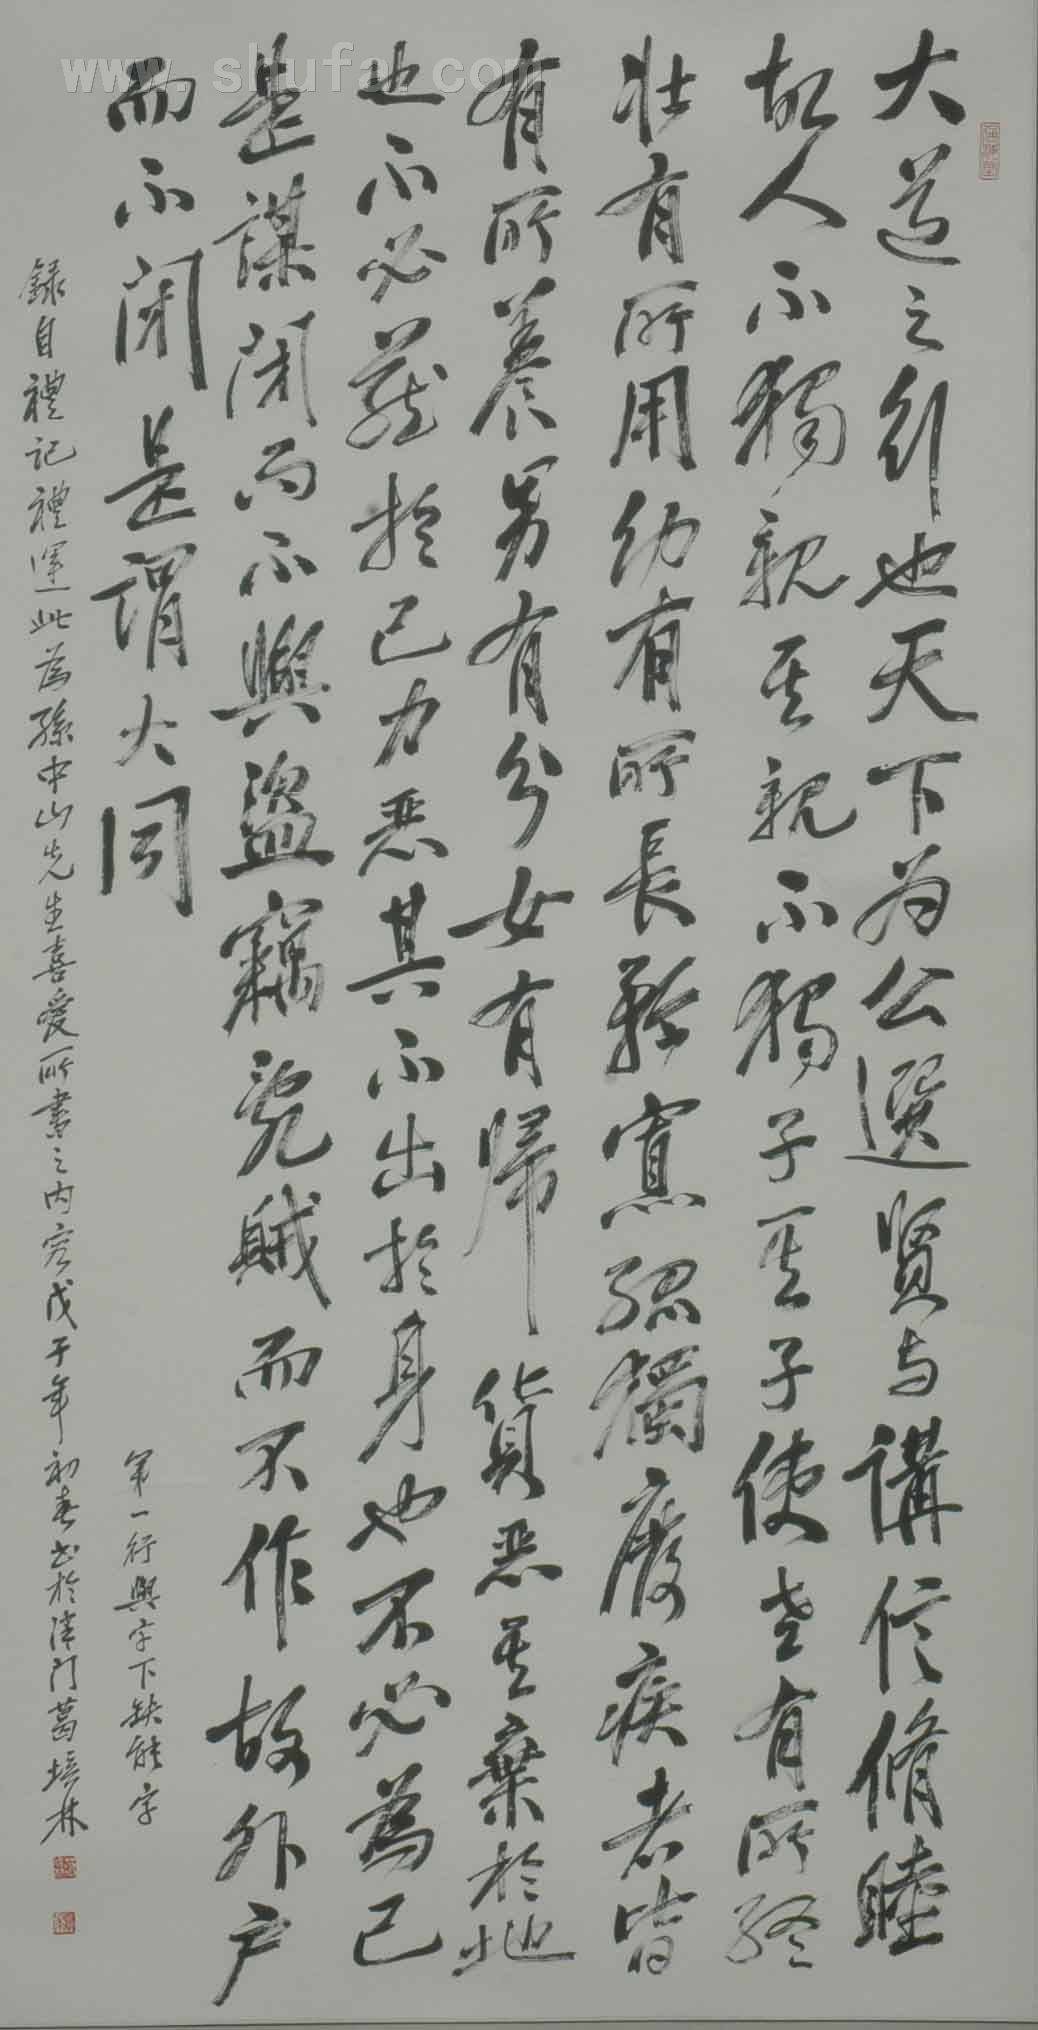 大道之行也天下为公選贤与講信脩睦
故人不獨親其親不獨子其子使老有所終
壯有所用幼有所長矜寡孤獨廢疾者皆
有所養男有分女有歸貨惡其棄於地
也不必藏於己力惡其不出於身也不必為己
是謀閉而不興盜竊亂賊而不作故外户
而不閉是謂大同
第一行與字下缺能字
錄自禮記禮運此為孫中山先生喜愛所書之内容戊子年初春书於津门葛培林
www.shufa.com